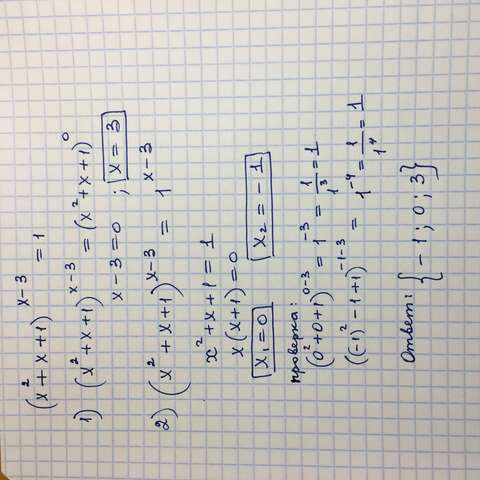 (x² + x + 1)^(x-3) = 1
1) (x² + x + 1)^(x-3) = (x² + x + 1)^0
x - 3 = 0 ; x = 3
2) (x² + x + 1)^(x-3) = 1^(x-3)
x² + x + 1 = 1
x(x+1) = 0
x₁ = 0 x₂ = -1
проверка:
(0² + 0 + 1)^(0-3) = 1^(-3) = 1/1³ = 1
((-1)² - 1 + 1)^(-1-3) = 1^(-4) = 1/1⁴ = 1
Ответ: {-1; 0; 3}